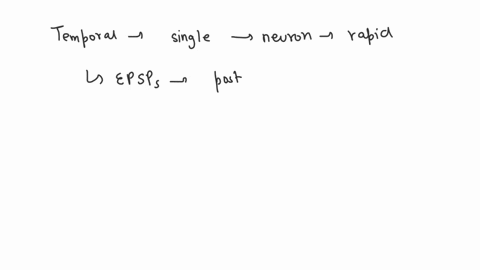 Temporal → single → neuron → rapid
↳ EPSPs → post